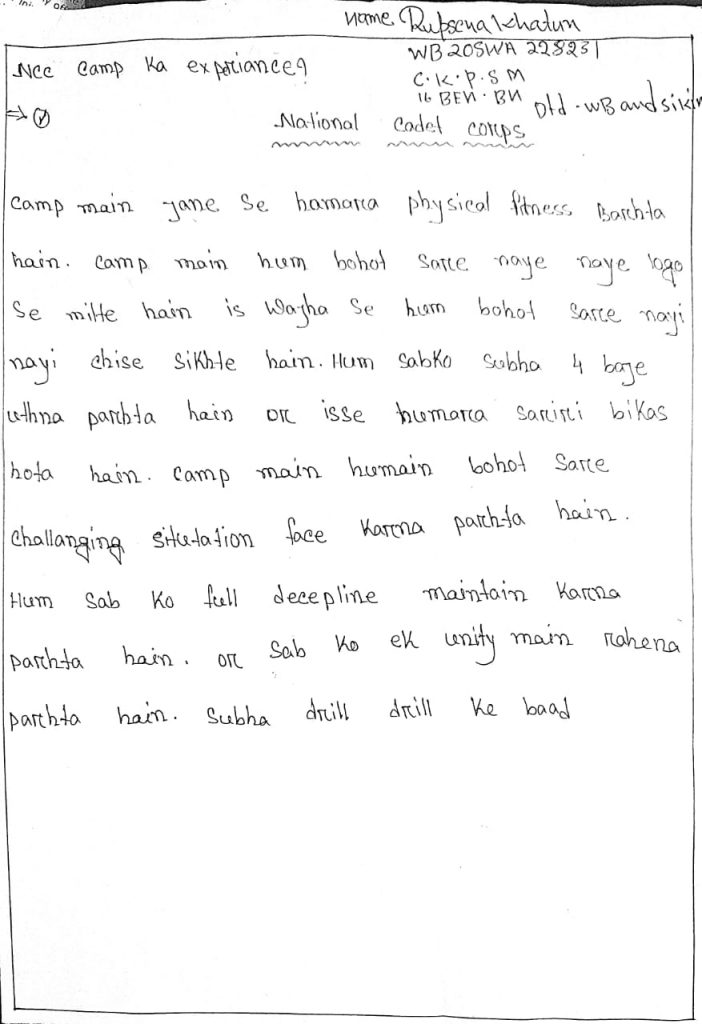 Name Rupsena Khatun
WB20SWA 228231
Ncc camp ka expriance?
C.K.P.S M
16 BEN. BN
Dtd - WB and sikim
National Cadet corps
camp main jane se hamara physical fitness Barhta
hain. camp main hum bohot sare naye naye logo
se milte hain is wajha se hum bohot sare nayi
nayi chise sikhte hain. Hum sabko subha 4 baje
uthna parhta hain or isse humara sariri bikas
hota hain. camp main humain bohot sare
challanging situtation face karna parhta hain.
Hum sab ko full decepline maintain karna
parhta hain. or sab ko ek unity main rahena
parhta hain. subha drill drill ke baad